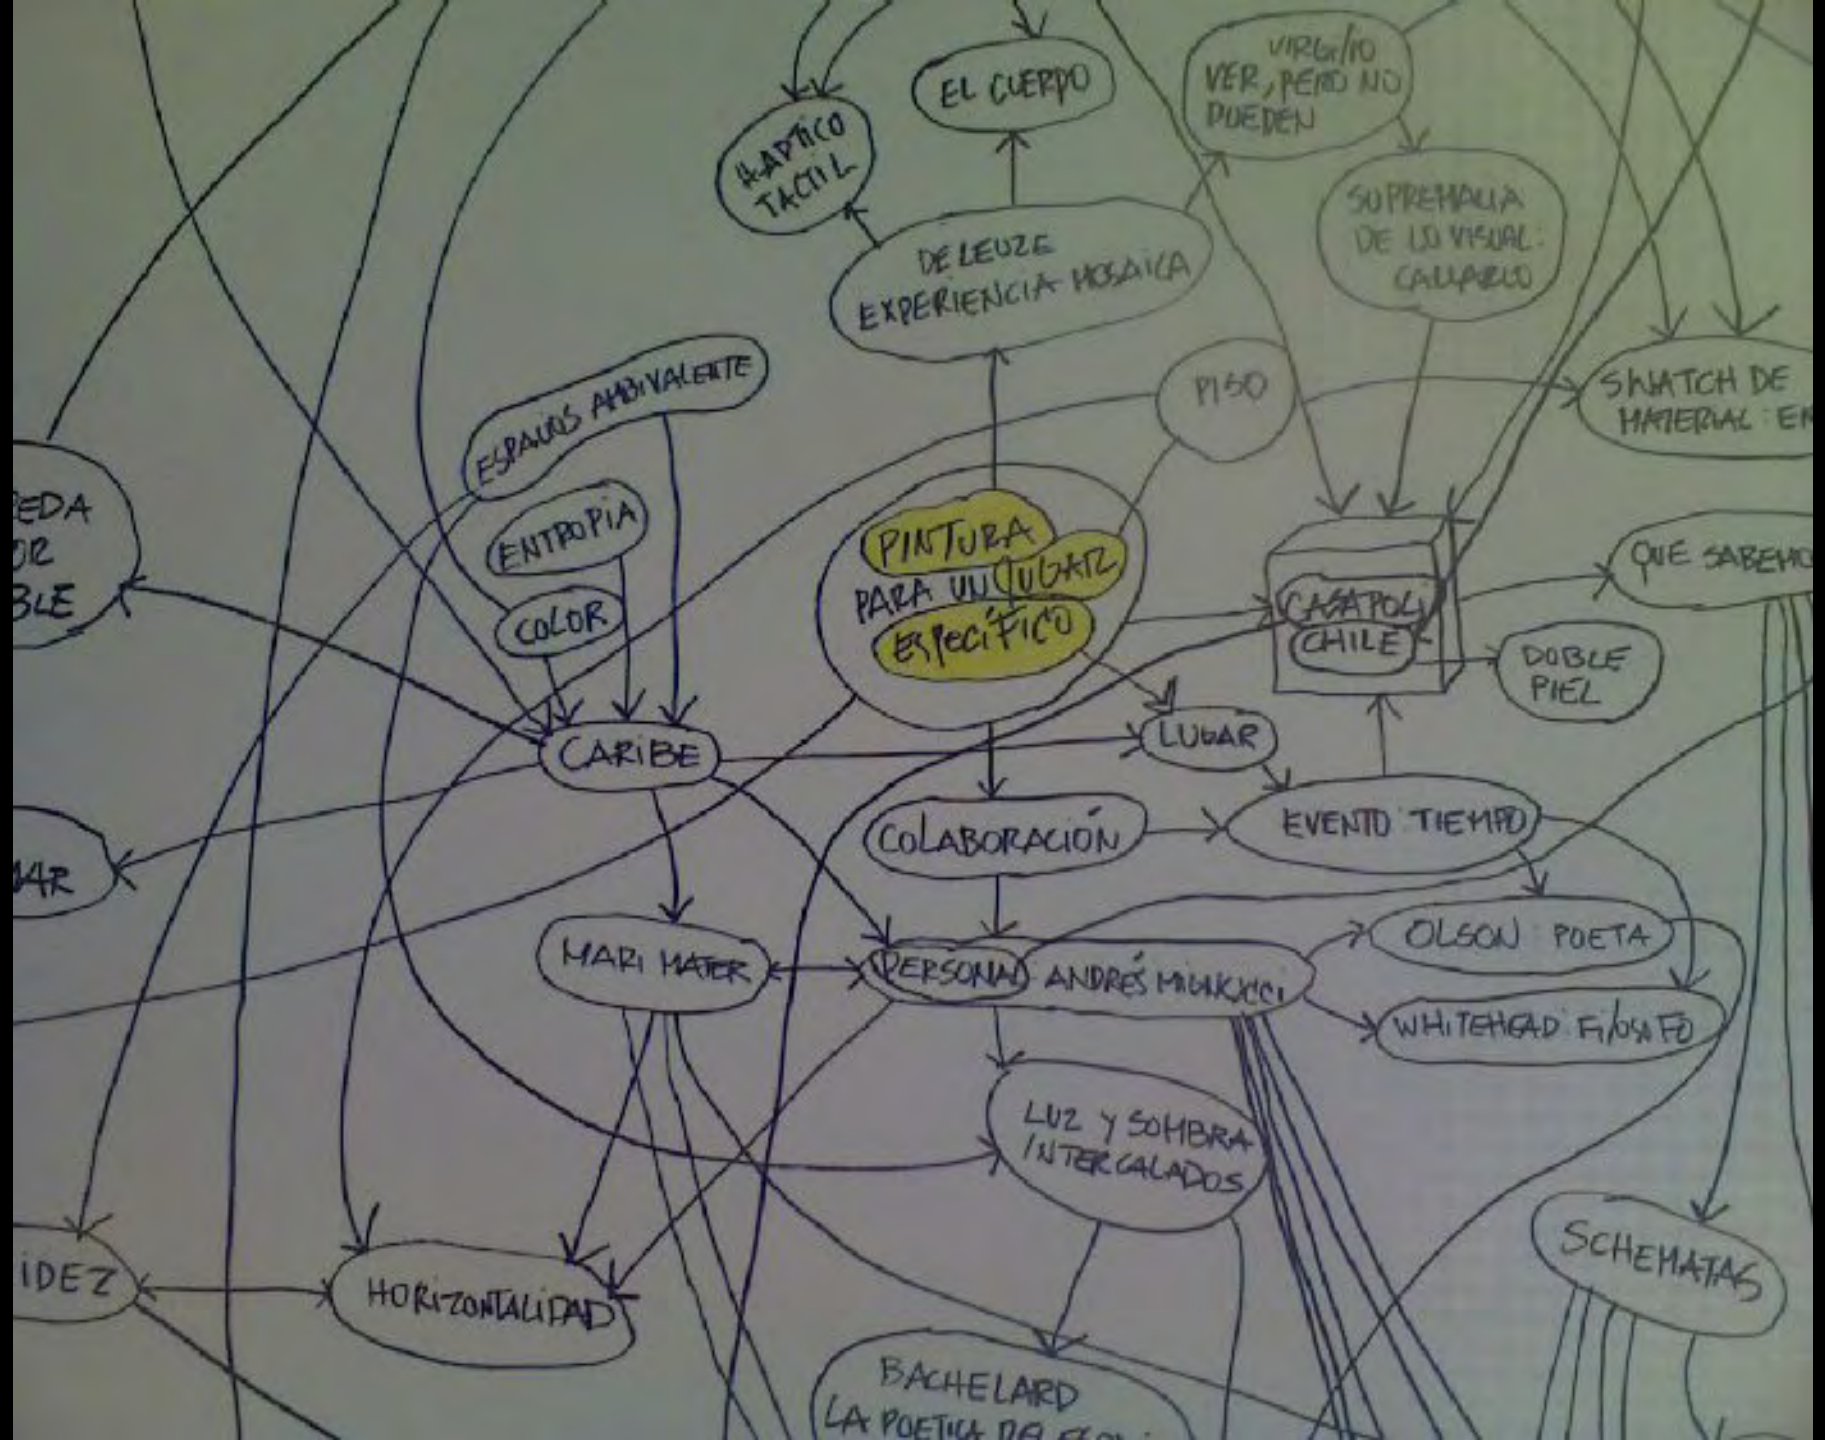 EL CUERPO
VIRGILIO
VER, PERO NO
PUEDEN
HAPTICO
TACTIL
SUPREMACIA
DE LO VISUAL:
DELEUZE
EXPERIENCIA MOSAICA
ESPACIOS AMBIVALENTE
PISO
SWATCH DE
MATERIAL: EN
EDA
OR
BLE
ENTROPIA
COLOR
PINTURA
PARA UN LUGAR
ESPECÍFICO
CASAPOLI
CHILE
QUE SABEMO
DOBLE
PIEL
CARIBE
LUGAR
COLABORACIÓN
EVENTO: TIEMPO
MAR
MARI MATER
PERSONAL: ANDRÉS
OLSON: POETA
WHITEHEAD: FILOSOFO
LUZ Y SOMBRA
INTERCALADOS
SCHEMATAS
IDEZ
HORIZONTALIDAD
BACHELARD
LA POETICA DEL